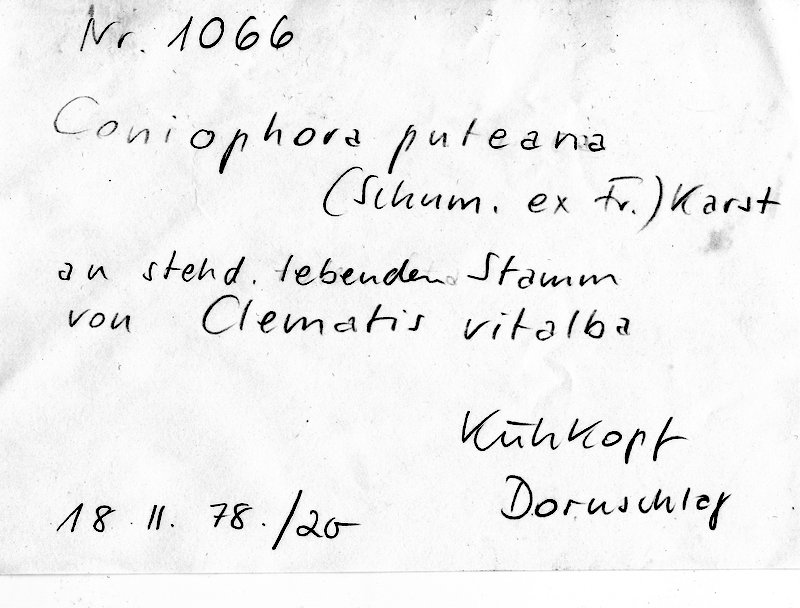 Nr. 1066
Coniophora puteana
(Schum. ex Fr.) Karst
an stehd. lebenden Stamm
von Clematis vitalba
Kühkopf
Dornschlag
18 II. 78. /